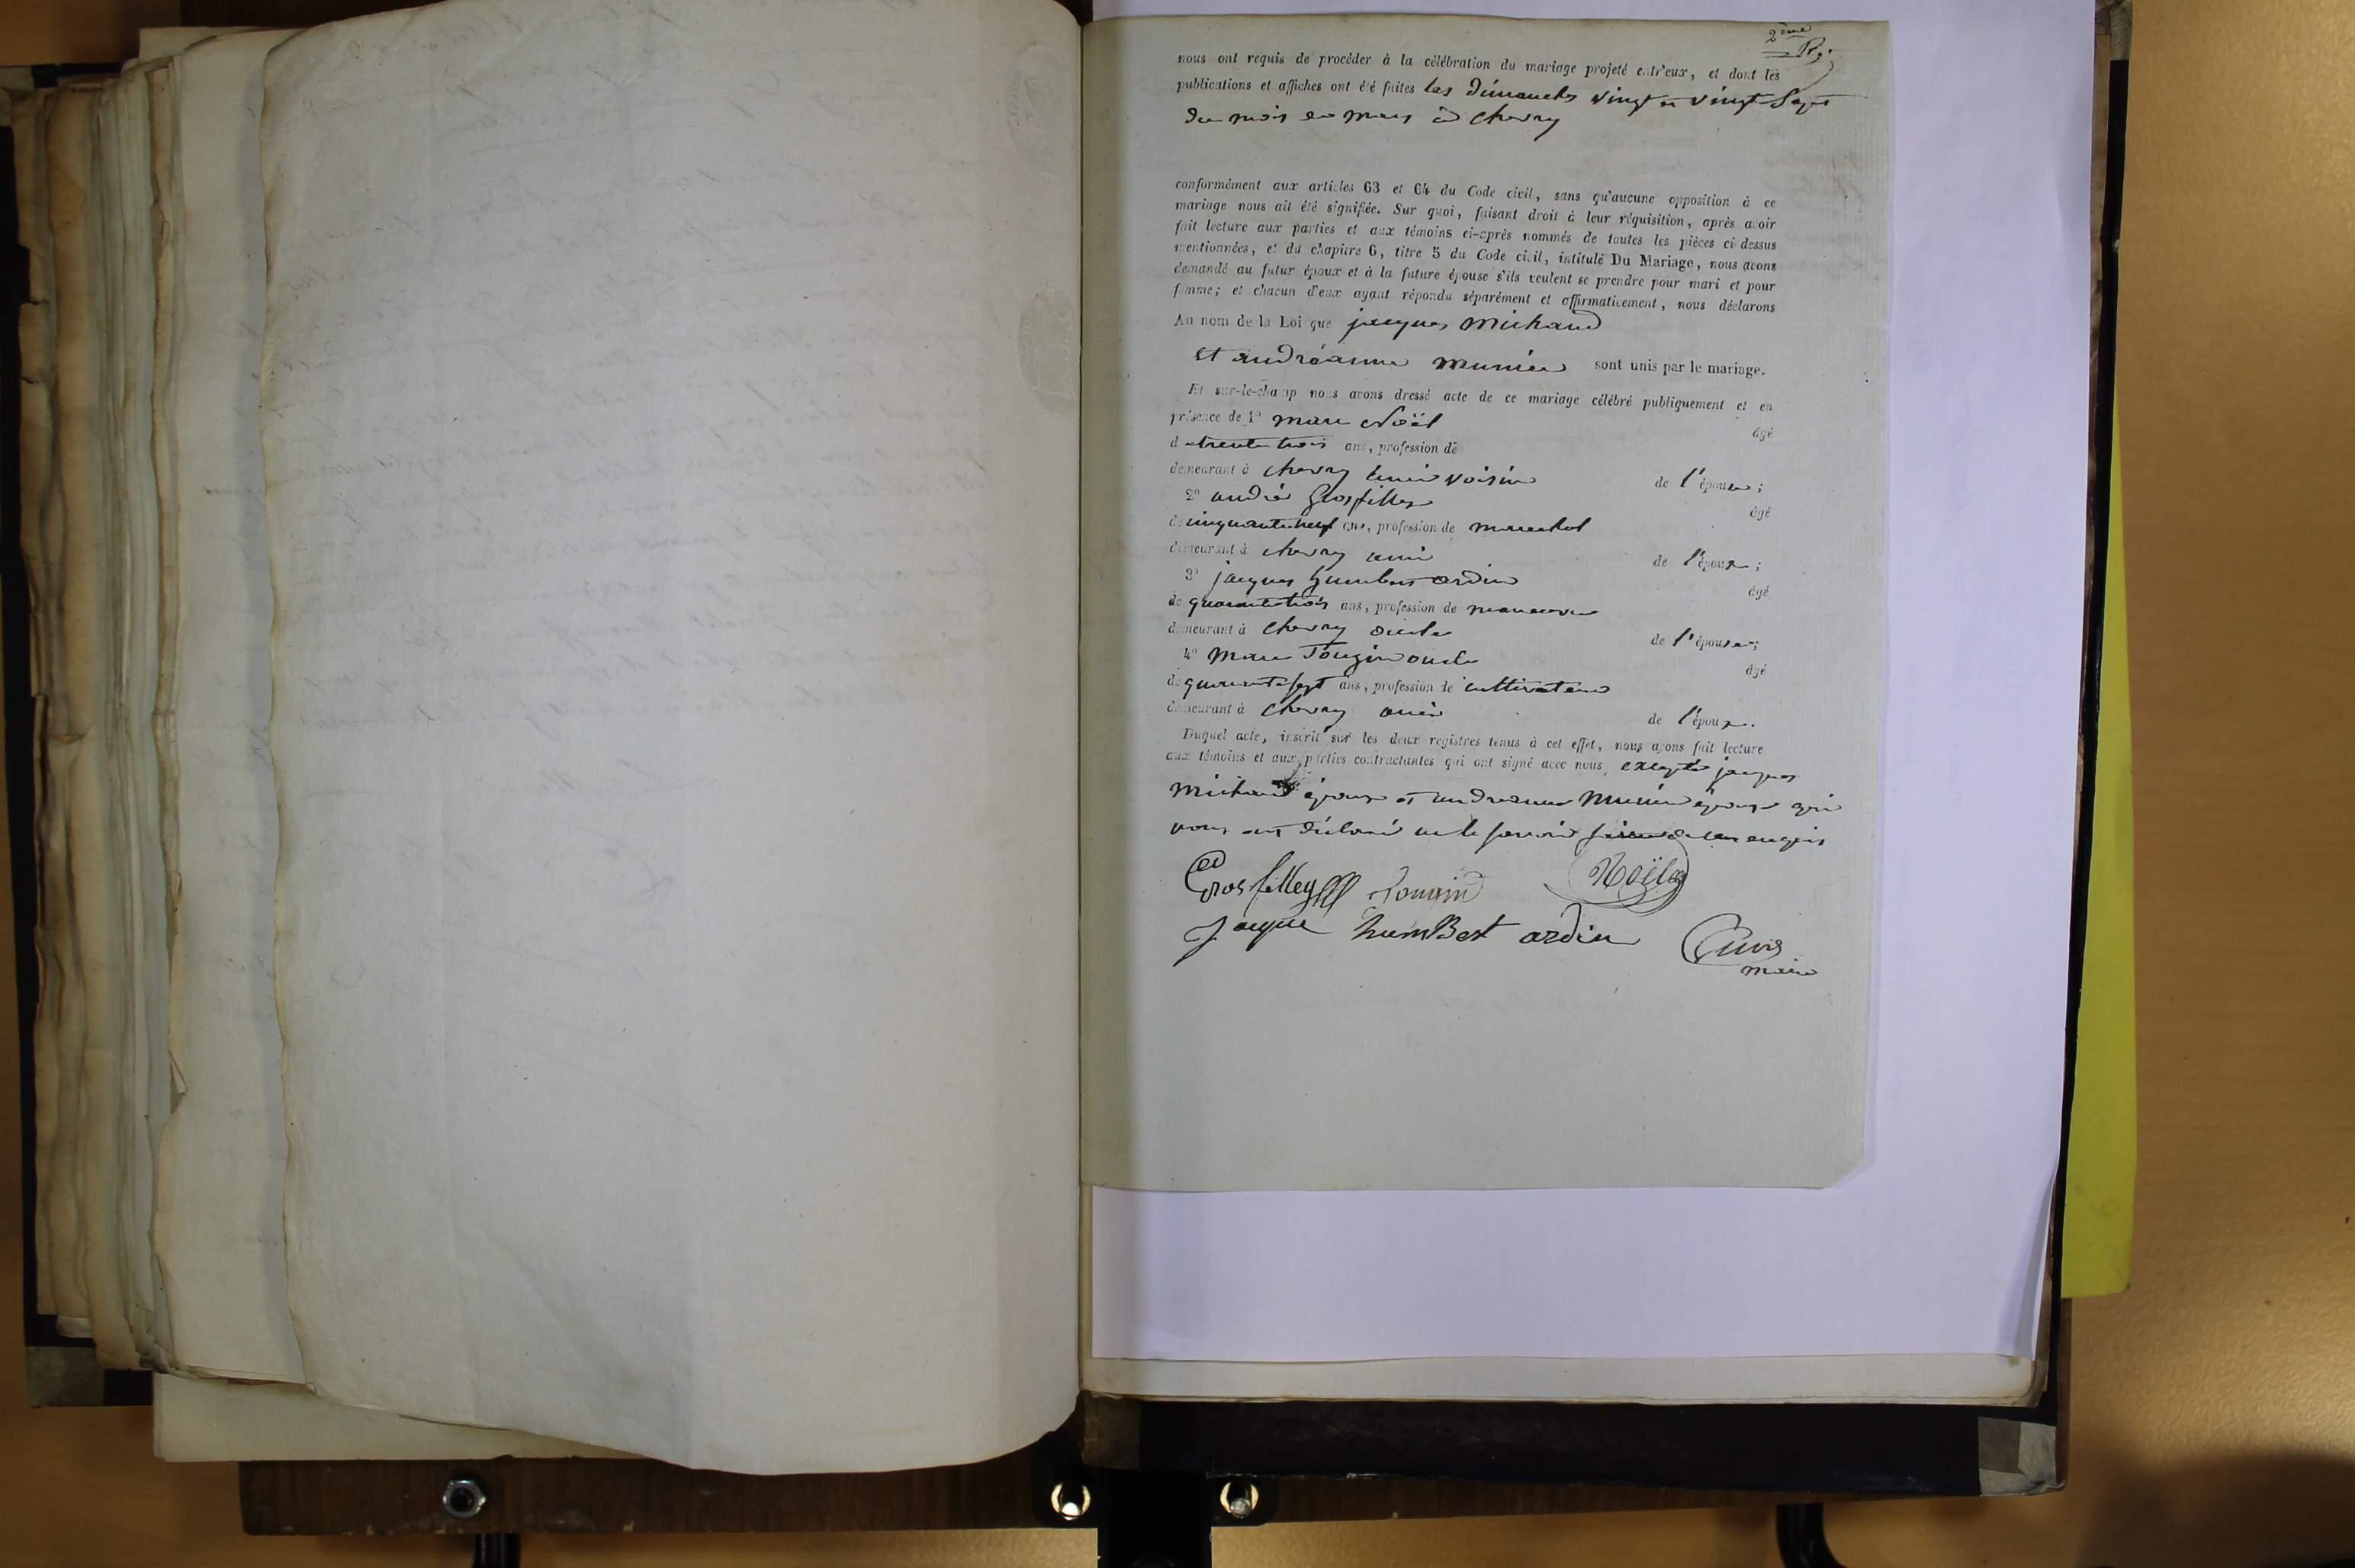 2ème
Rg.
nous ont requis de procéder à la célébration du mariage projeté entr'eux, et dont les
publications et affiches ont été faites les dimanches vingt et vingt Sept
du mois de mars à chevry
conformément aux articles 63 et 64 du Code civil, sans qu'aucune opposition à ce
mariage nous ait été signifiée. Sur quoi, faisant droit à leur réquisition, après avoir
fait lecture aux parties et aux témoins ci-après nommés de toutes les pièces ci-dessus
mentionnées, et du chapitre 6, titre 5 du Code civil, intitulé Du Mariage, nous avons
demandé au futur époux et à la future épouse s'ils veulent se prendre pour mari et pour
femme; et chacun d'eux ayant répondu séparément et affirmativement, nous déclarons
Au nom de la Loi que jacques michaud
et andréanne munier sont unis par le mariage.
Et sur-le-champ nous avons dressé acte de ce mariage célébré publiquement et en
présence de 1° marc Noël âgé
de trente trois ans, profession de
demeurant à chevry voisin de l'épouse;
2° andré Grosfilley âgé
de cinquante neuf ans, profession de marechal
demeurant à chevry ami de l'époux;
3° jacques humbert ardin âgé
de quarante trois ans, profession de manoeuvre
demeurant à chevry oncle de l'épouse;
4° marc oncle âgé
de quarante sept ans, profession de cultivateur
demeurant à chevry ami de l'époux.
Duquel acte, inscrit sur les deux registres tenus à cet effet, nous avons fait lecture
aux témoins et aux parties contractantes qui ont signé avec nous, excepté jacques
michaud époux et andréanne munier épouse qui
nous ont déclaré ne le savoir faire de ce enquis
Grosfilley Noël
jacque humBert ardin
maire